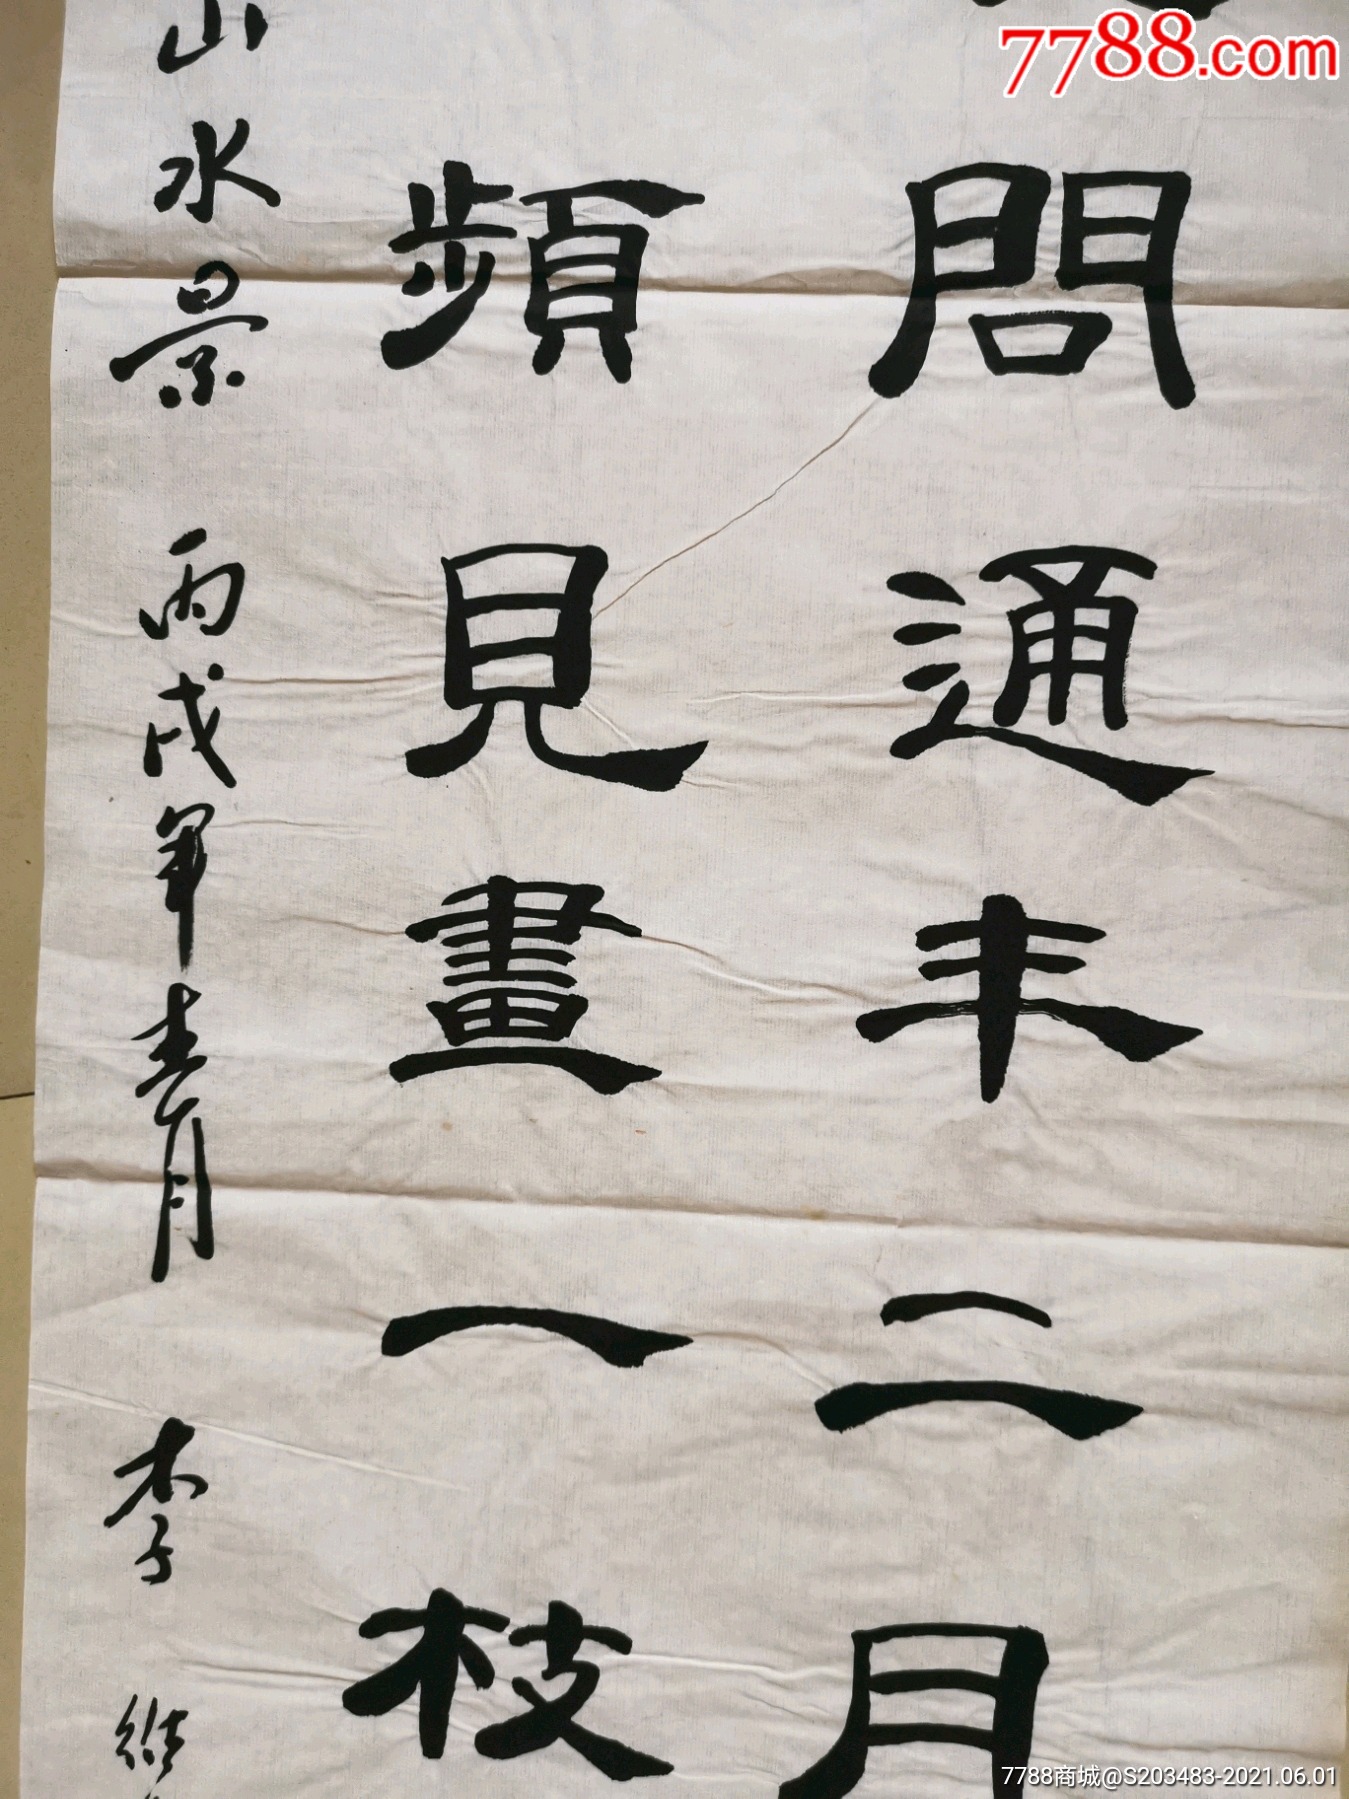 7788.com
問通耒二月
頻見畫一枝
山水景 丙戌年春月 李
7788商城@S203483-2021.06.01